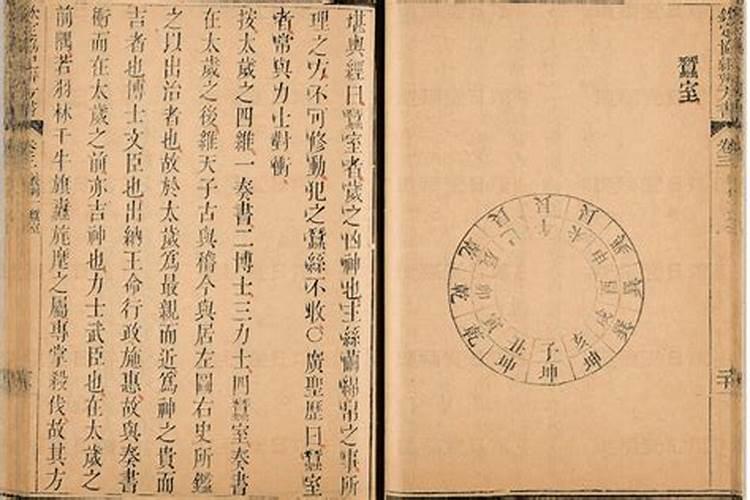 欽定協紀辨方書 卷三
蠶室
子丑寅卯辰巳午未申酉戌亥
坤坤乾乾乾艮艮艮巽巽巽坤
堪輿經曰蠶室者歲之凶神也主絲繭綿帛之事所
理之方不可修動犯之蠶絲不收○廣聖歷曰蠶室
者常與力士對衝
按太歲之四維一奏書二博士三力士四蠶室奏書
在太歲之後維天子古與稽今與居左圖右史所鑑
之以出治者也故於太歲爲最親而近爲神之貴而
吉者也博士文臣也出納王命行政施惠故與奏書
衝而在太歲之前亦吉神也力士武臣也在太歲之
前隅若羽林千牛旗纛旄麾之屬專掌殺伐故其方
卷三 蠶室